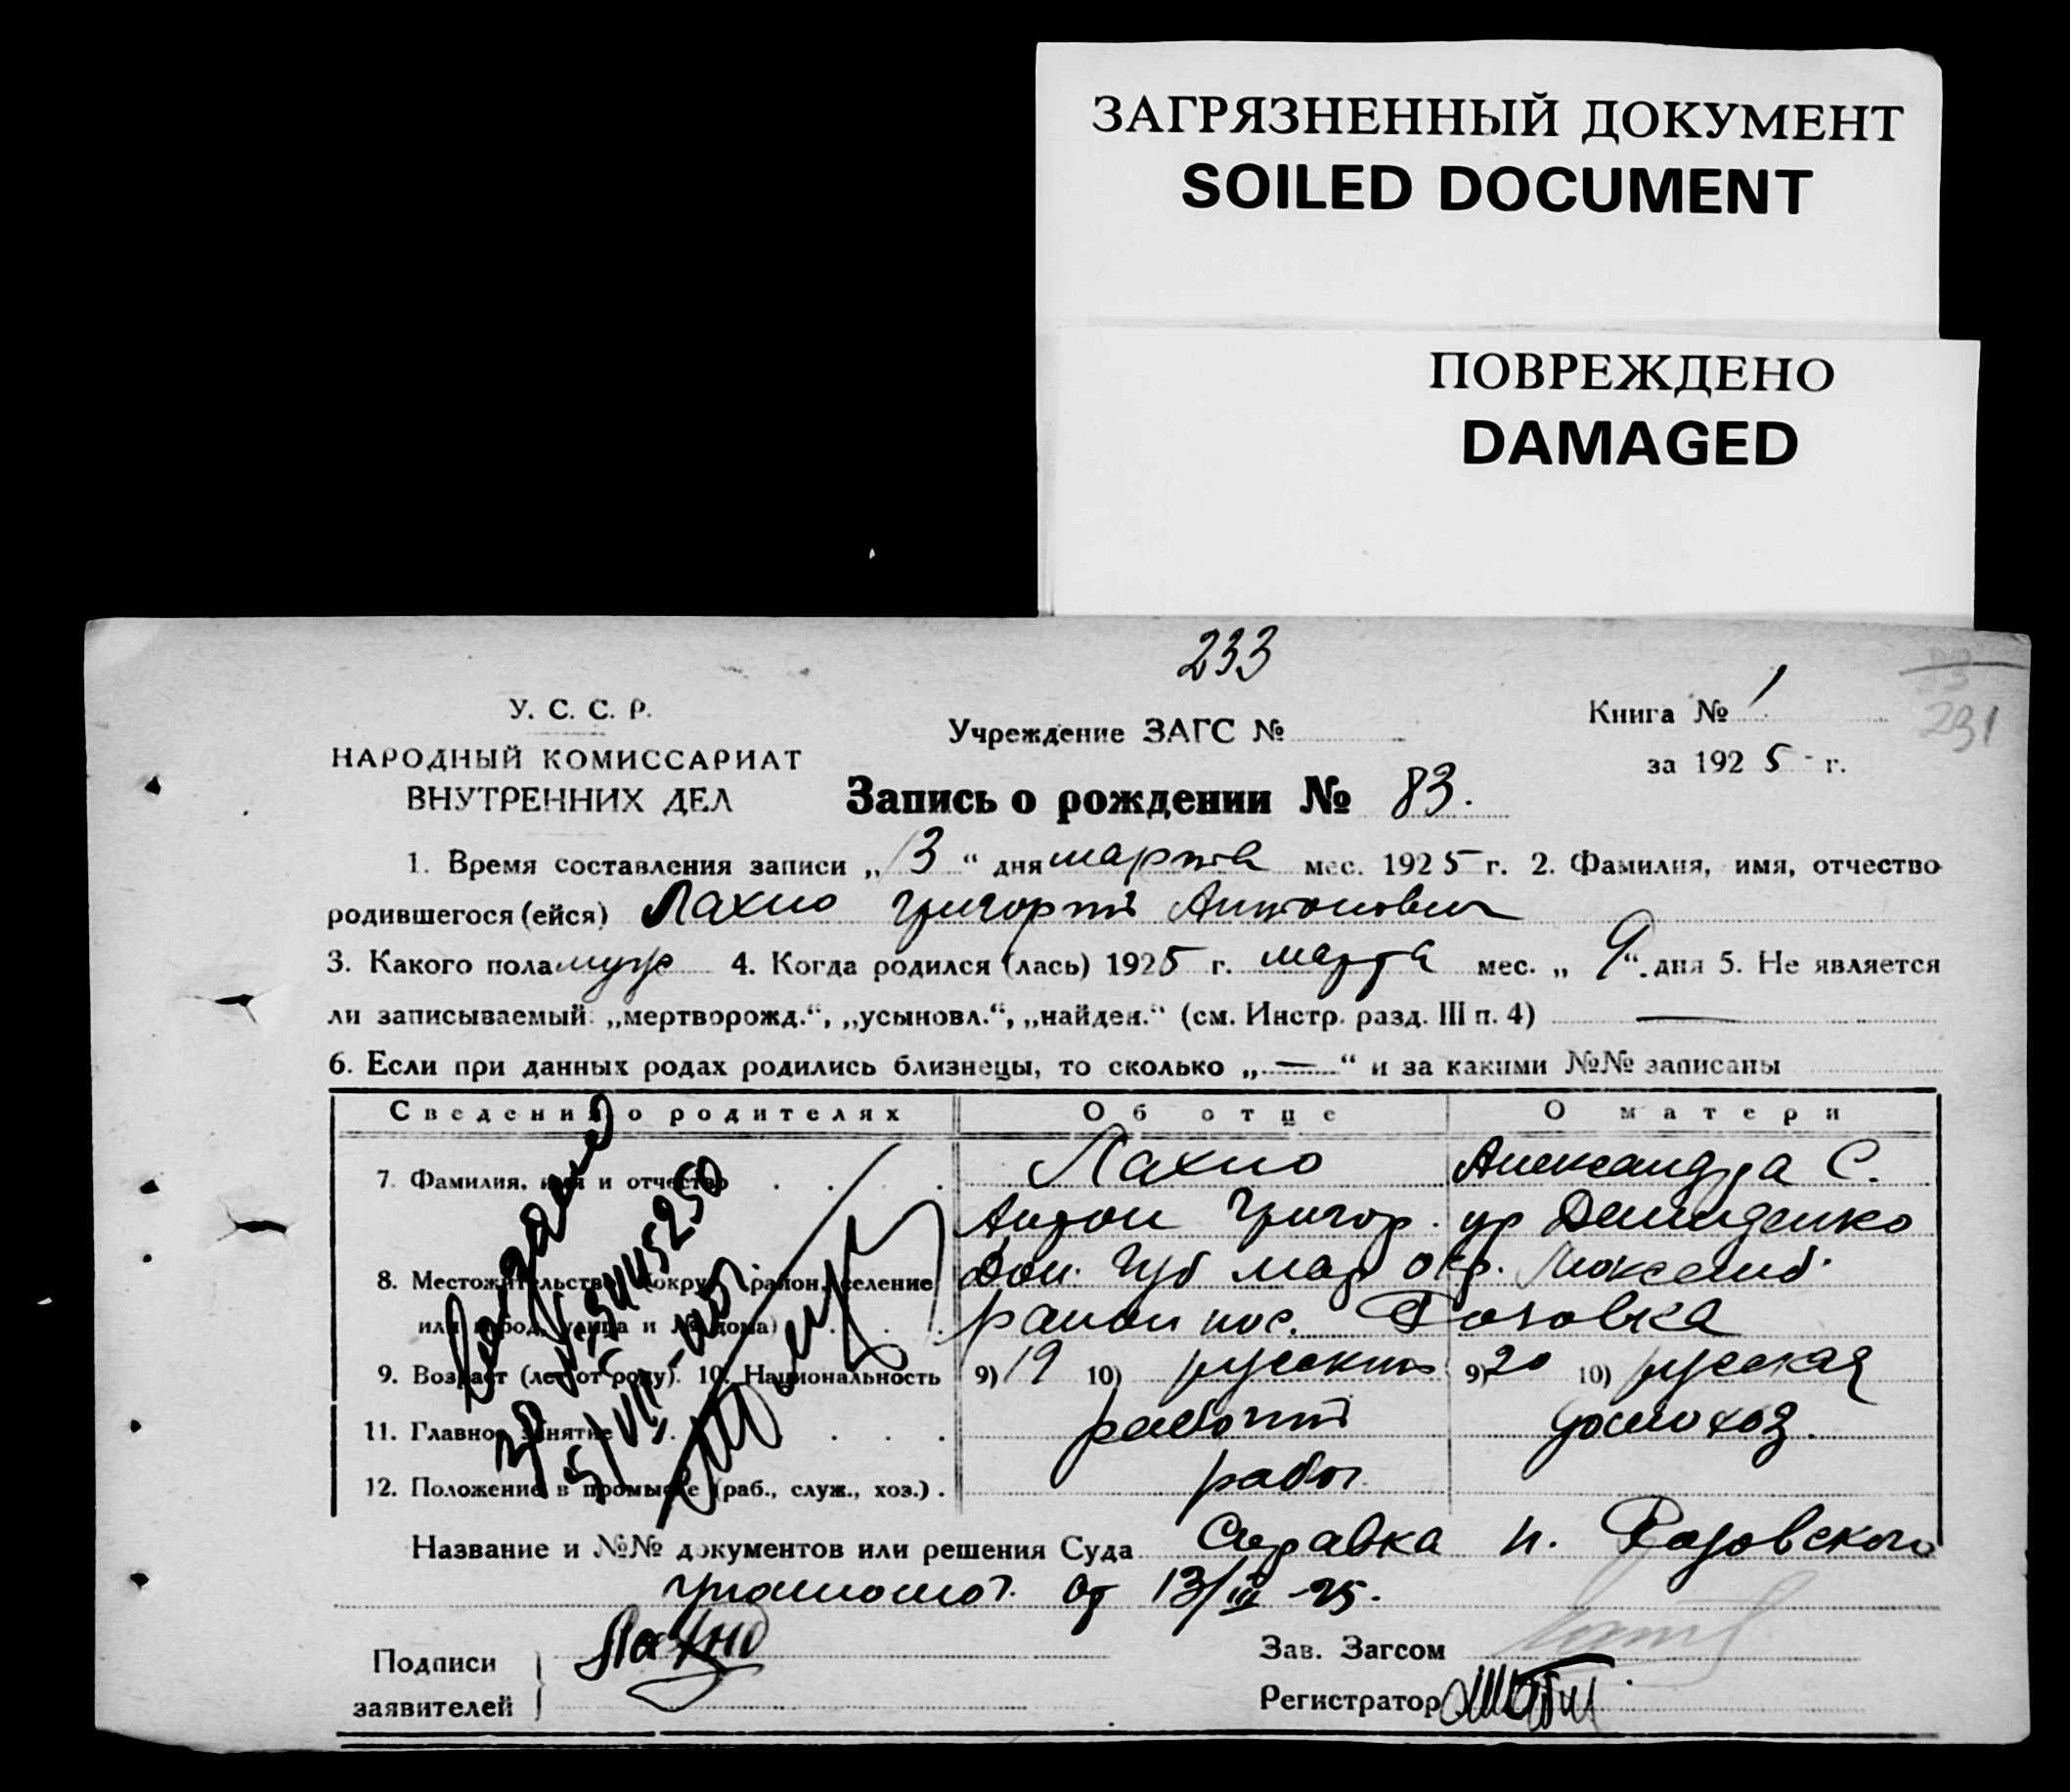 ЗАГРЯЗНЕННЫЙ ДОКУМЕНТ
SOILED DOCUMENT
ПОВРЕЖДЕНО
DAMAGED
233
У. С. С. Р.
НАРОДНЫЙ КОМИССАРИАТ
ВНУТРЕННИХ ДЕЛ
Учреждение ЗАГС №
Книга № 1
231
за 1925 г.
Запись о рождении № 83.
1. Время составления записи „13“ дня марта мес. 1925 г. 2. Фамилия, имя, отчество
родившегося (ейся) Лахно Григорій Антонович
3. Какого пола муж 4. Когда родился (лась) 1925 г. марта мес. „9“ дня 5. Не является
ли записываемый: „мертворожд.“, „усыновл.“, „найден.“ (см. Инстр. разд. III п. 4) —
6. Если при данных родах родились близнецы, то сколько „—“ и за какими №№ записаны
Сведения о родителях Об отце О матери
7. Фамилия, имя и отчество Лахно Александра С.
Антон Григор. ур Демиденко
8. Местожительство (округ, район, селение Дон. Губ мар окр.
или город, улица и № дома) район пос. Розовка
9. Возраст (лет от роду). 10. Национальность 9) 19 10) русский 9) 20 10) русская
11. Главное занятие рабочий домохоз.
12. Положение в промысле (раб., служ., хоз.) раб.
Название и №№ документов или решения Суда Справка п. Розовского
от 13/III-25.
Подписи
заявителей
Лахно
Зав. Загсом
Регистратор